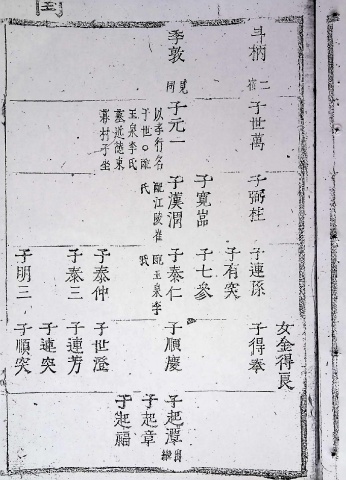 斗柄
季敦
子世萬
子元一
以孝行名
于世○配
玉泉李氏
墓延德東
村子坐
子弼柱
子寬嵓
子漢潤
配江陵崔
氏
子連孫
子有突
子七參
子泰仁
配玉泉李
氏
子泰仲
子泰三
子明三
女金得良
子得奉
子順慶
子世澄
子連芳
子連突
子順突
子起潭
子起章
子起福